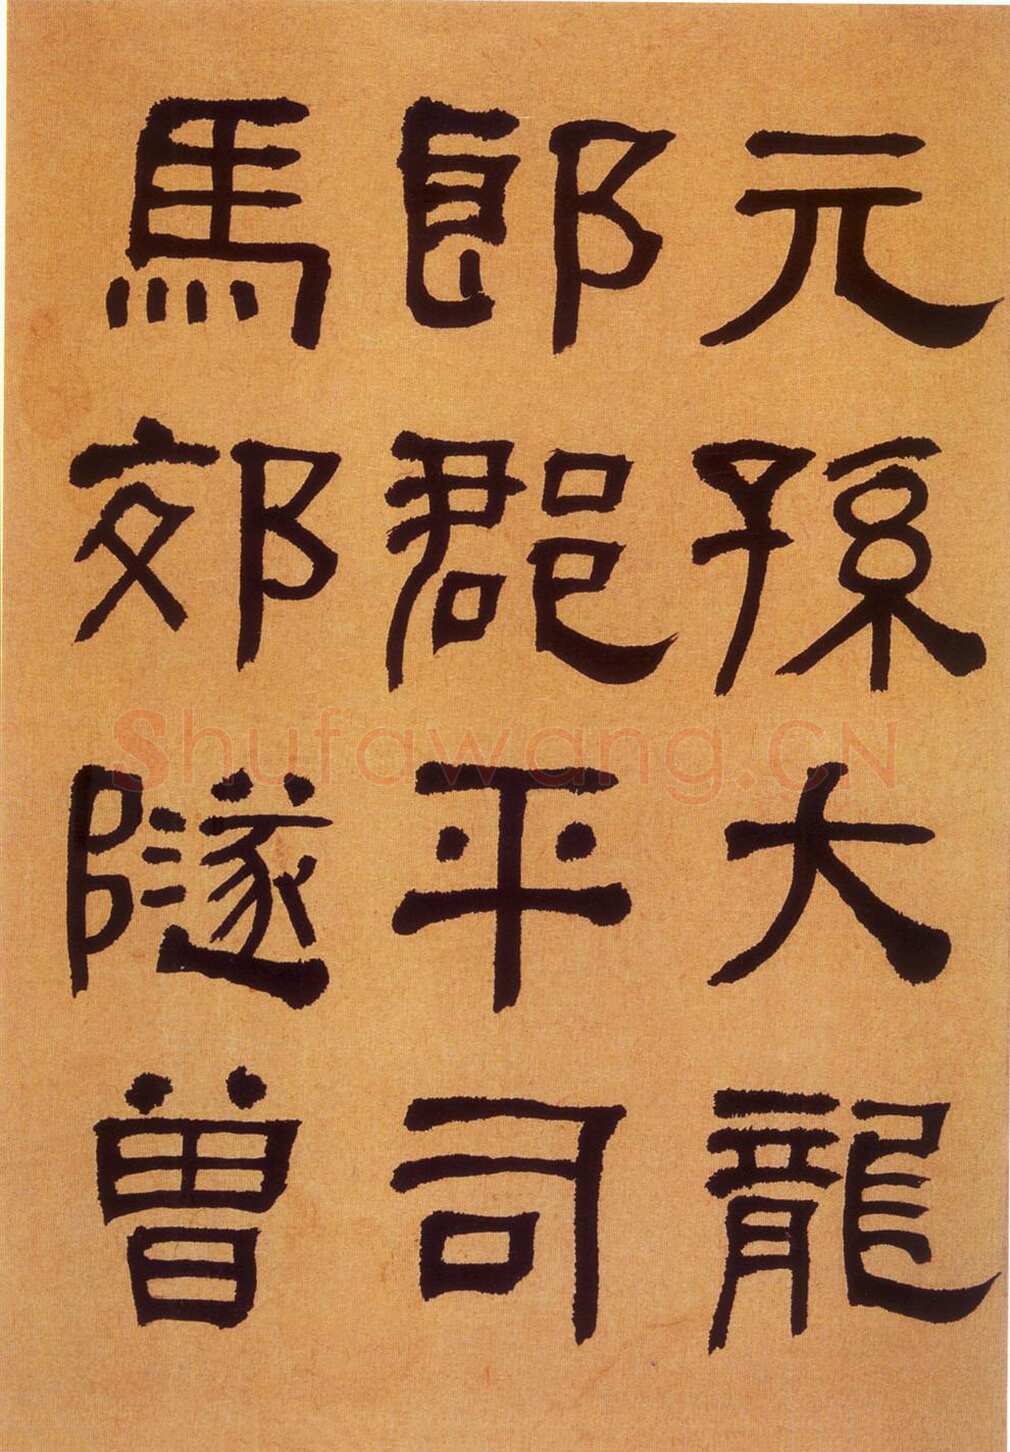 元孫大龍
郎郡平司
馬郊隧曾
Shufawang.CN